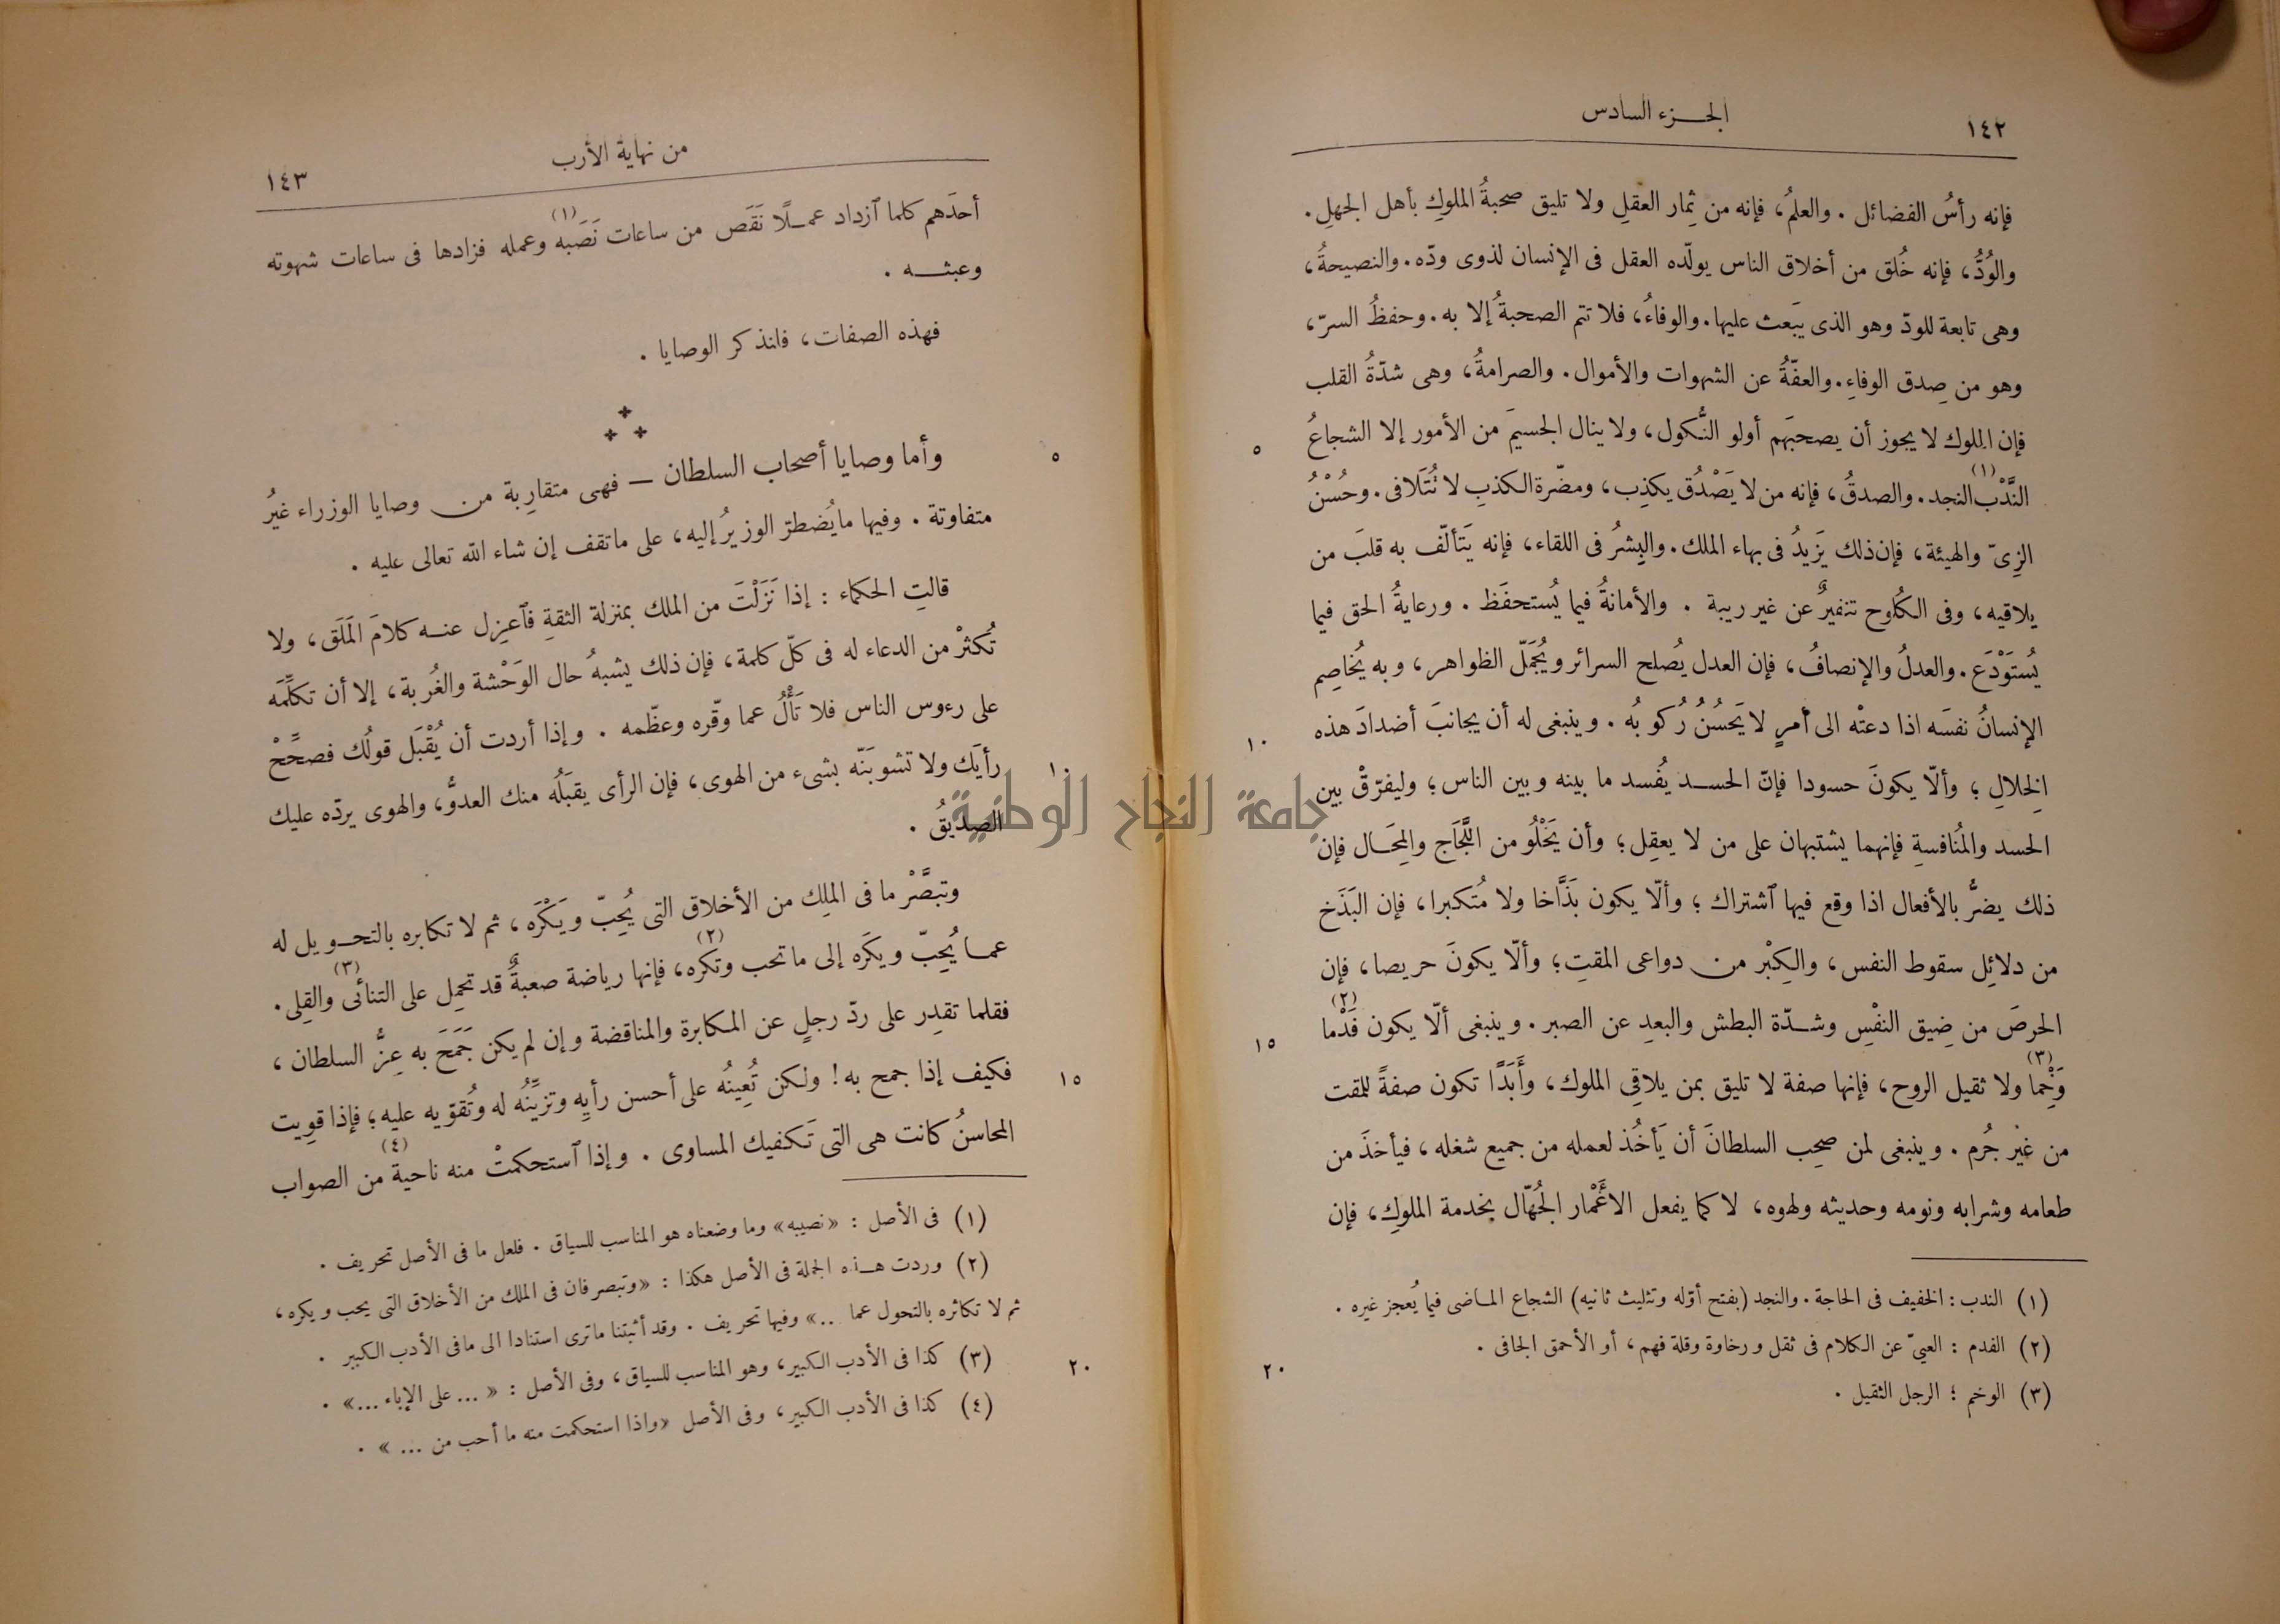 ١٤٢
الجـــزء السادس
فإنه رأسُ الفضائل . والعلمُ، فإنه من ثِمار العقلِ ولا تليق صحبةُ الملوكِ بأهل الجهلِ.
والوُدُّ، فإنه خُلق من أخلاق الناس يولّده العقل فى الإنسان لذوى ودّه. والنصيحةُ،
وهى تابعة للودّ وهو الذى يَبعث عليها. والوفاءُ، فلا تتم الصحبةُ إلا به. وحفظُ السرّ،
وهو من صِدق الوفاءِ. والعفّةُ عن الشهوات والأموال. والصرامةُ، وهى شدّةُ القلب
فإن الملوك لا يجوز أن يصحبَهم أولو النُّكول، ولا ينال الجسيمَ من الأمور إلا الشجاعُ
٥
النَّدْب(١) النجد. والصدقُ، فإنه من لا يَصْدُق يكذِب، ومضّرة الكذبِ لا تُتَلافى. وحُسْنُ
الزِىّ والهيئة، فإن ذلك يَزيدُ فى بهاء الملك. والبِشرُ فى اللقاء، فإنه يَتألّف به قلبَ من
يلاقيه، وفى الكُلوح تنفيرٌ عن غير ريبة . والأمانةُ فيما يُستحفَظ . ورعايةُ الحق فيما
يُستَوْدَع. والعدلُ والإنصافُ، فإن العدل يُصلح السرائر ويُجَمِّل الظواهر، وبه يُخاصِم
الإنسانُ نفسَه اذا دعتْه الى أمرٍ لا يَحسُنُ رُكوبُه . وينبغى له أن يجانبَ أضدادَ هذه
١٠
الخِلالِ؛ وألّا يكونَ حسودا فإنّ الحســد يُفسد ما بينه وبين الناس؛ وليفرّقْ بين
الحسد والمُنافسةِ فإنهما يشتبهان على من لا يعقِل؛ وأن يَخْلُو من اللَّجَاج والمِحَــال فإن
ذلك يضرُّ بالأفعال اذا وقع فيها ٱشتراك؛ وألّا يكون بَذَّاخا ولا مُتكبرا، فإن البَذَخ
من دلائِل سقوط النفس، والكِبْر من دواعى المقتِ؛ وألّا يكونَ حريصا، فإن
الحرصَ من ضِيق النفْسِ وشــدّة البطش والبعدِ عن الصبر. وينبغى ألّا يكون فَدْما(٢)
١٥
وَخْما(٣) ولا ثقيل الروح، فإنها صفة لا تليق بمن يلاقِى الملوك، وأَبَدًا تكون صفةً للمقت
من غيْر جُرم . وينبغى لمن صحِب السلطانَ أن يَأخُذ لعمله من جميع شغله، فيأخذَ من
طعامه وشرابه ونومه وحديثه ولهوه، لا كما يفعل الاغْمار الجُهّال بخدمة الملوكِ، فإن
(١) الندب: الخفيف فى الحاجة. والنجد (بفتح أوّله وتثليث ثانيه) الشجاع المـاضى فيما يُعجز غيره .
(٢) الفدم : العيىّ عن الكلام فى ثقل ورخاوة وقلة فهم، أو الأحمق الجافى .
٢٠
(٣) الوخم ؛ الرجل الثقيل .
من نهاية الأرب
١٤٣
أحدَهم كلما ٱزداد عمــلًا نَقَص من ساعات نَصَبه(١) وعمله فزادها فى ساعات شهوته
وعبثــــه .
فهذه الصفات، فلنذكر الوصايا .
وأما وصايا أصحاب السلطان — فهى متقارِبة من وصايا الوزراء غيرُ
٥
متفاوتة . وفيها ما يُضطرّ الوزيرُ إليه، على ما تقف إن شاء الله تعالى عليه .
قالتِ الحكماء : إذا نَزَلْتَ من الملك بمنزلة الثقةِ فٱعزِل عنــه كلامَ المَلَق، ولا
تُكثرْ من الدعاء له فى كلّ كلمة، فإن ذلك يشبهُ حال الوَحْشة والغُربة، إلا أن تكلِّمَه
على رءوس الناس فلا تَأْلُ عما وقّره وعظّمه . وإذا أردت أن يُقْبَل قولُك فصحِّحْ
رأيَك ولا تشوبَنّه بشىء من الهوى، فإن الرأى يقبَلُه منك العدوُّ، والهوى يردّه عليك
١٠
الصديقُ .
وتبصَّرْ ما فى الملِك من الأخلاق التى يُحِبّ ويَكْرَه، ثم لا تكابره بالتحــويل له
عمــا يُحِبّ ويكرَه إلى ما تحب وتكره(٢)، فإنها رياضة صعبةٌ قد تحمِل على التنائى(٣) والقِلى.
فقلما تقدِر على ردّ رجلٍ عن المكابرة والمناقضة وإن لم يكن جَمَحَ به عِزُّ السلطان،
فكيف إذا جمح به! ولكن تُعِينُه على أحسن رأيِه وتزيِّنُه له وتُقوّيه عليه؛ فإذا قوِيت
١٥
المحاسنُ كانت هى التى تَكفيك المساوى . وإذا ٱستحكمتْ منه ناحية(٤) من الصواب
(١) فى الأصل : «نصيبه» وما وضعناه هو المناسب للسياق . فلعل ما فى الأصل تحريف .
(٢) وردت هــذه الجملة فى الأصل هكذا : «وتبصر فان فى الملك من الأخلاق التى يحب ويكره،
ثم لا تكاثره بالتحول عما ...» وفيها تحريف . وقد أثبتنا ما ترى استنادا الى ما فى الأدب الكبير .
(٣) كذا فى الأدب الكبير، وهو المناسب للسياق، وفى الأصل : « ... على الإباء ...» .
٢٠
(٤) كذا فى الأدب الكبير، وفى الأصل «واذا استحكمت منه ما أحب من ... » .
جامعة النجاح الوطنية